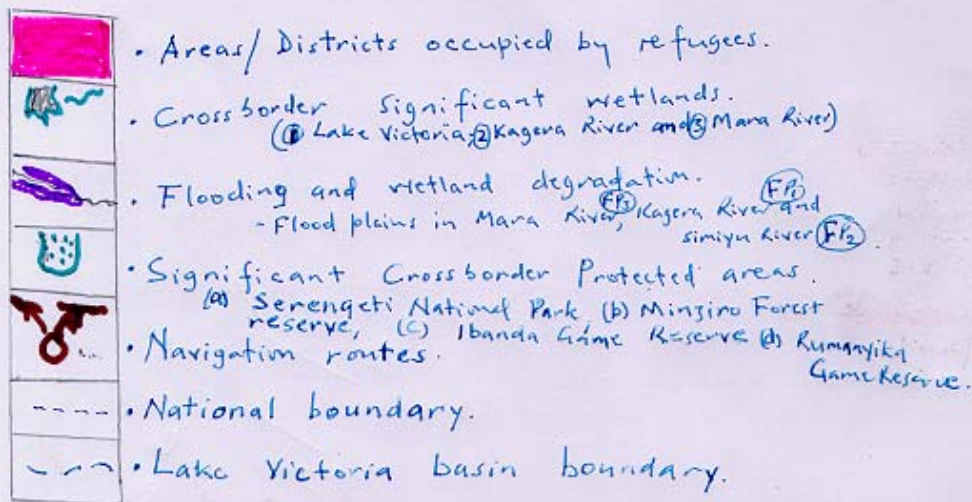 • Areas/Districts occupied by refugees.
• Crossborder significant wetlands.
(① Lake Victoria, ② Kagera River and ③ Mara River)
• Flooding and wetland degradation.
- Flood plains in Mara River FP3, Kagera River FP1 and
simiyu River FP2.
• Significant Crossborder Protected areas.
(a) Serengeti National Park (b) Minziro Forest
reserve, (c) Ibanda Game Reserve (d) Rumanyika
Game Reserve.
• Navigation routes.
• National boundary.
• Lake Victoria basin boundary.